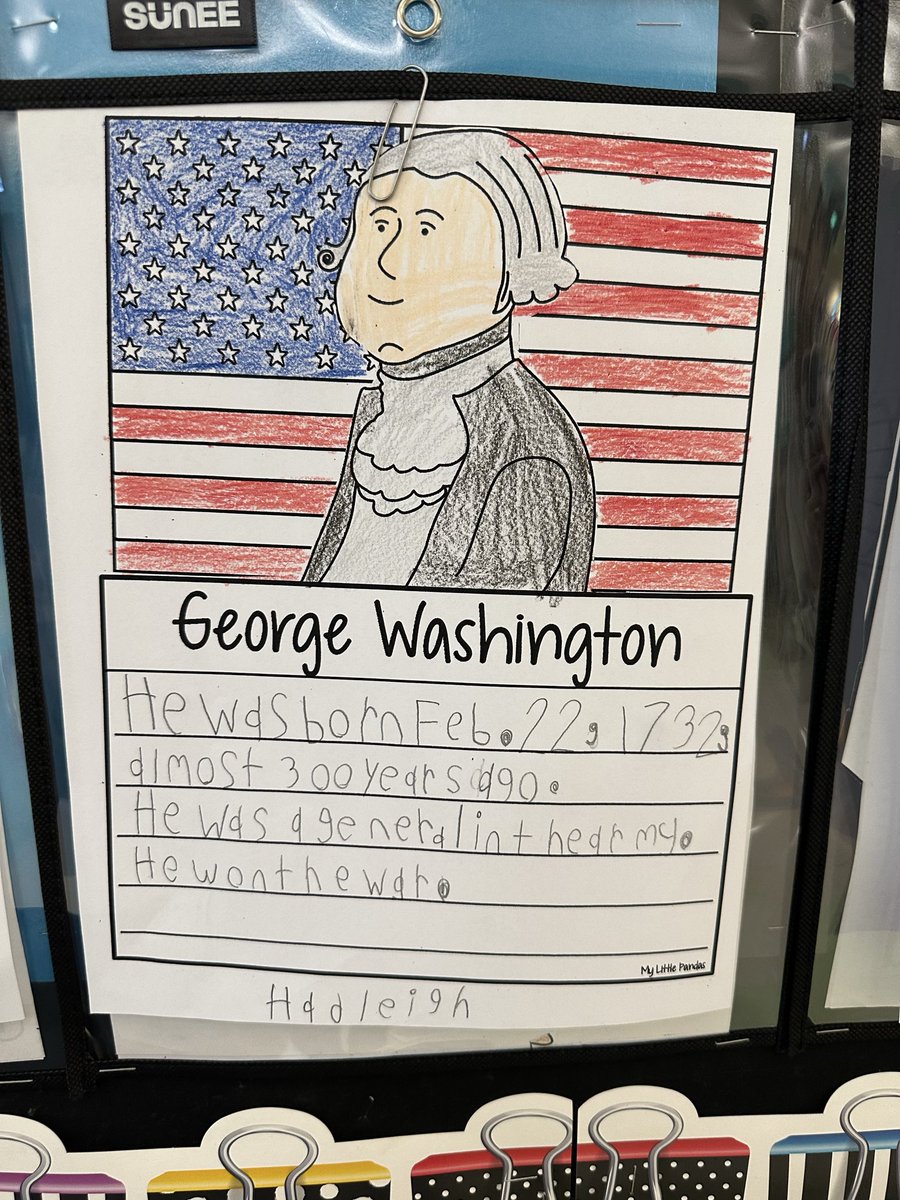 SUNEE
George Washington
He was born Feb. 22, 1732,
almost 300 years ago.
He was a general in the army.
He won the war.
My Little Pandas
Hadleigh